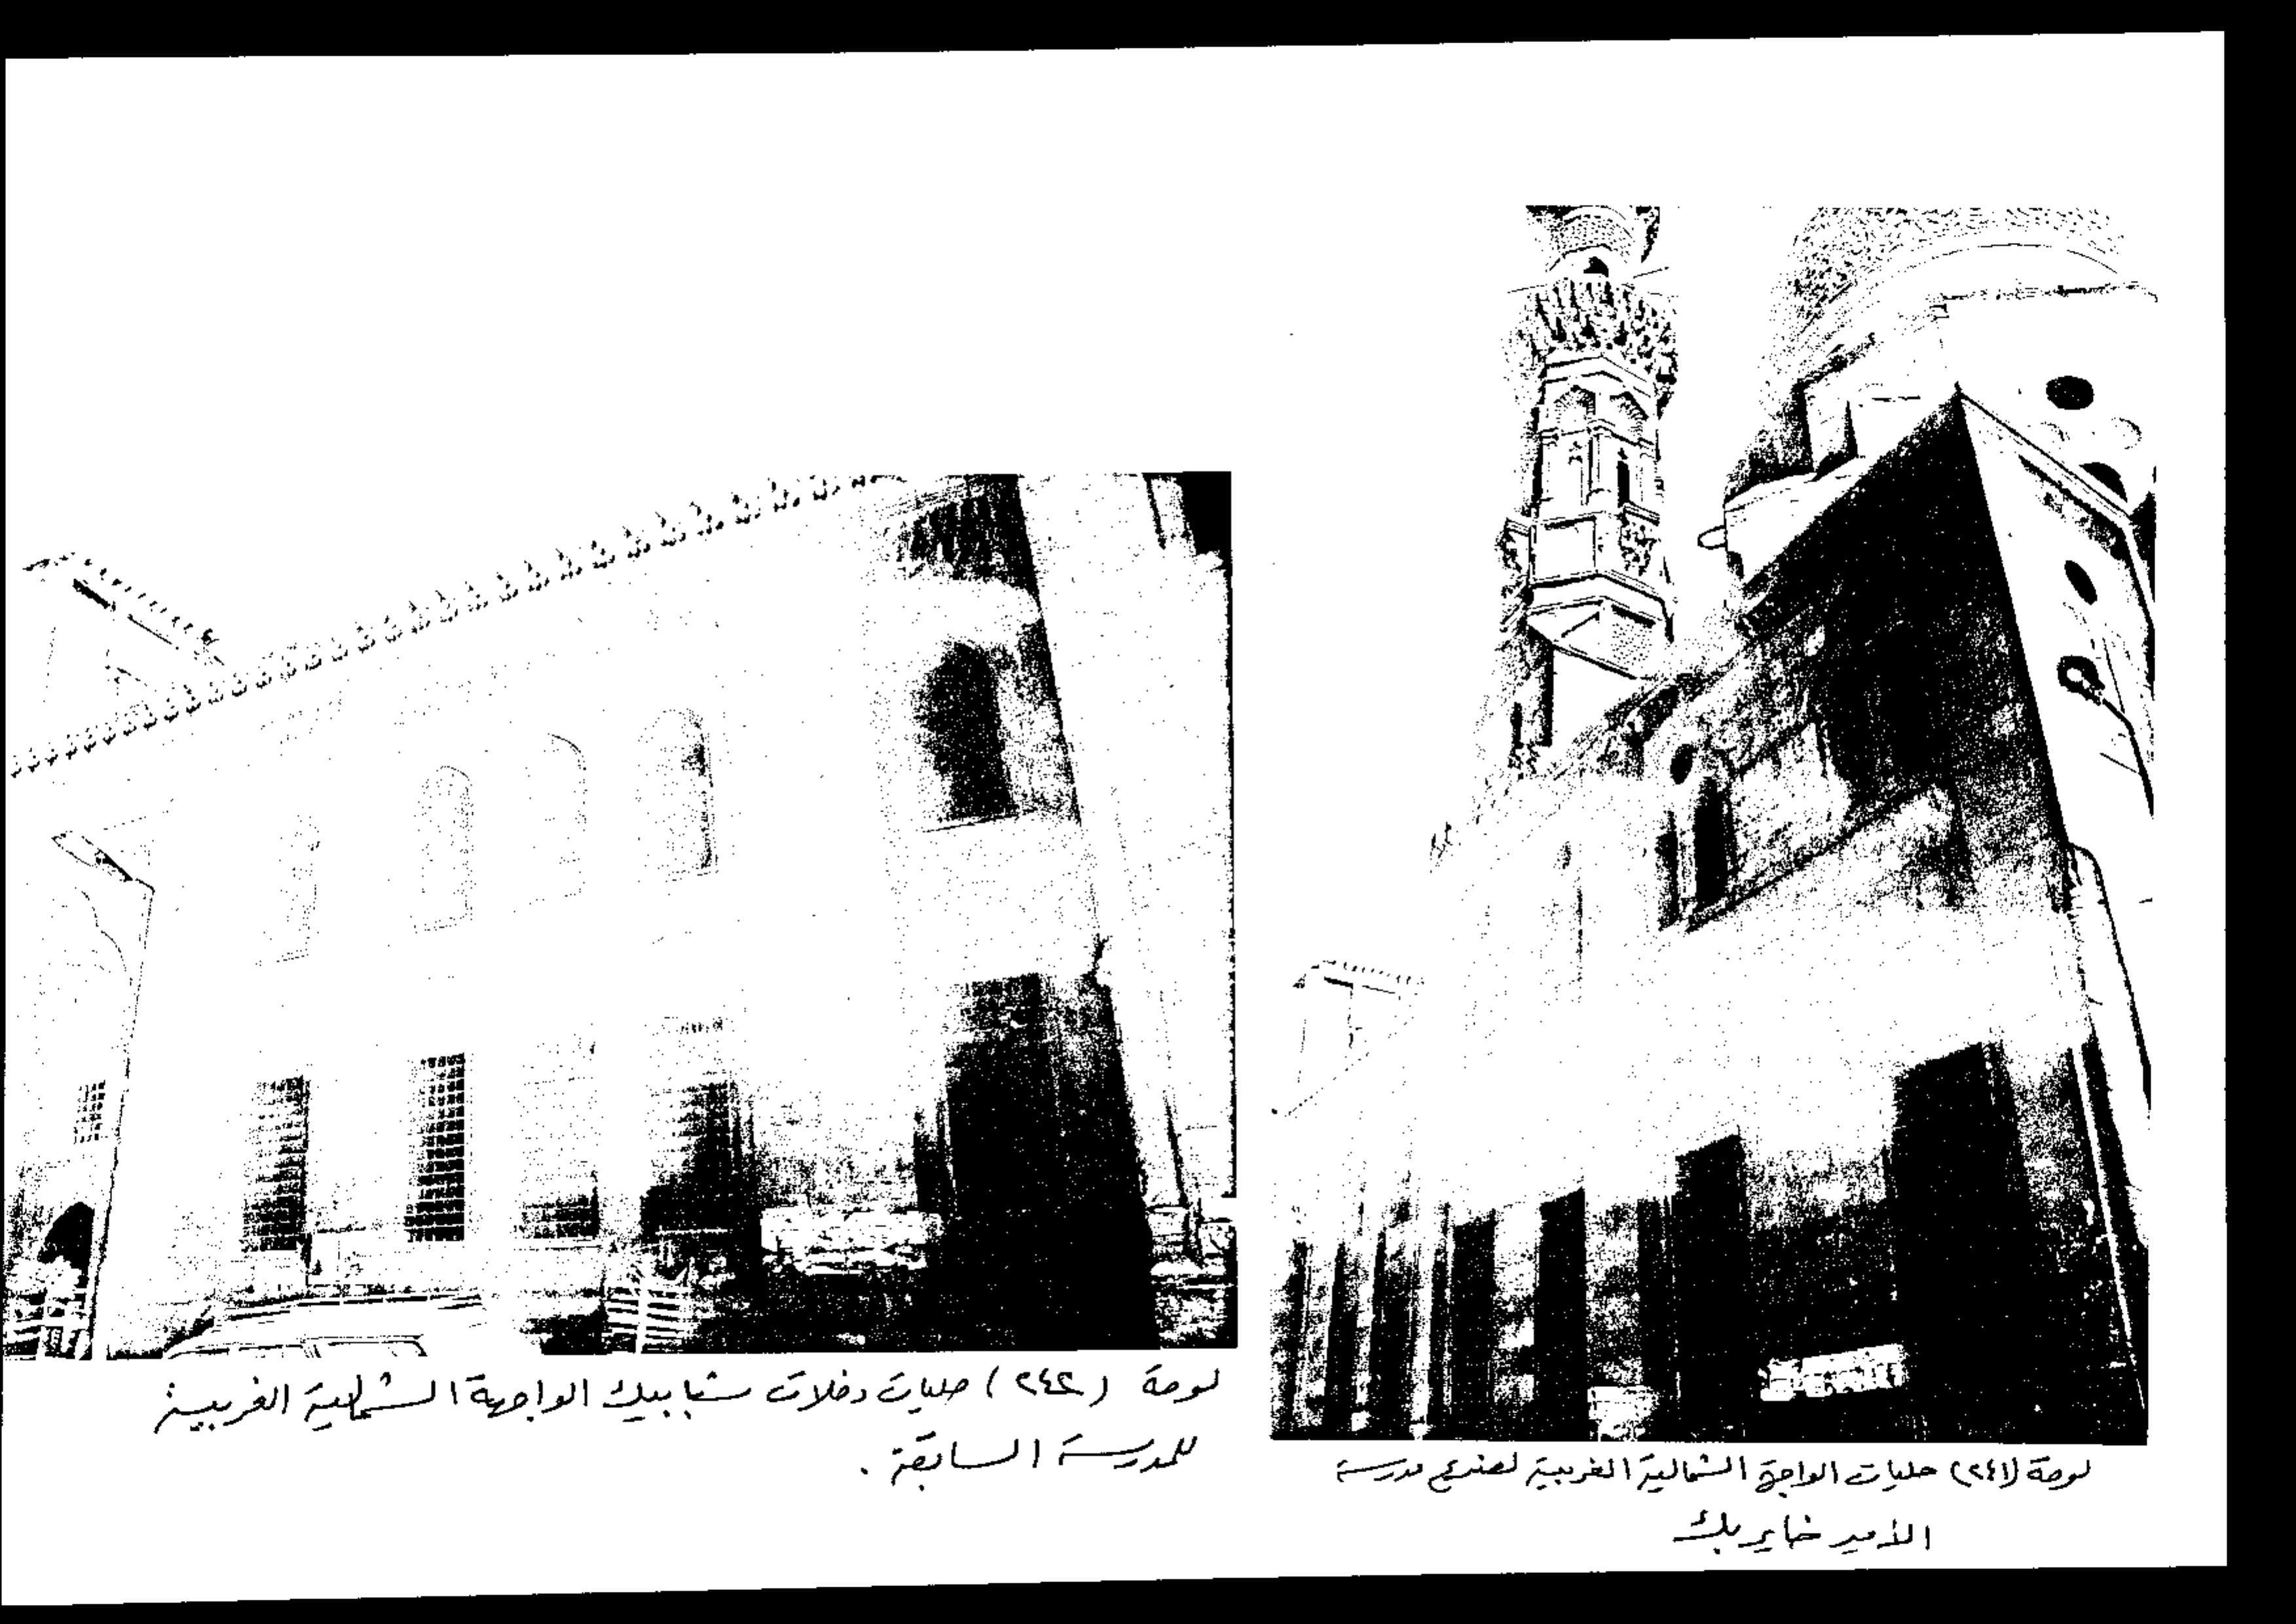 لوحة (٢٤١) حليات الواجهة الشمالية الغربية لضريح مدرسة
الأمير خاير بك
لوحة (٢٤٢) حليات دخلات شبابيك الواجهة الشمالية الغربية
للمدرسة السابقة .